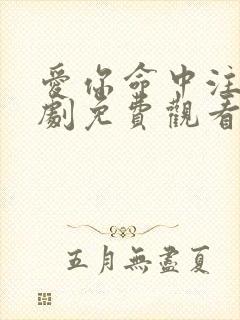 愛你命中注
劇免費觀看
五月無盡夏